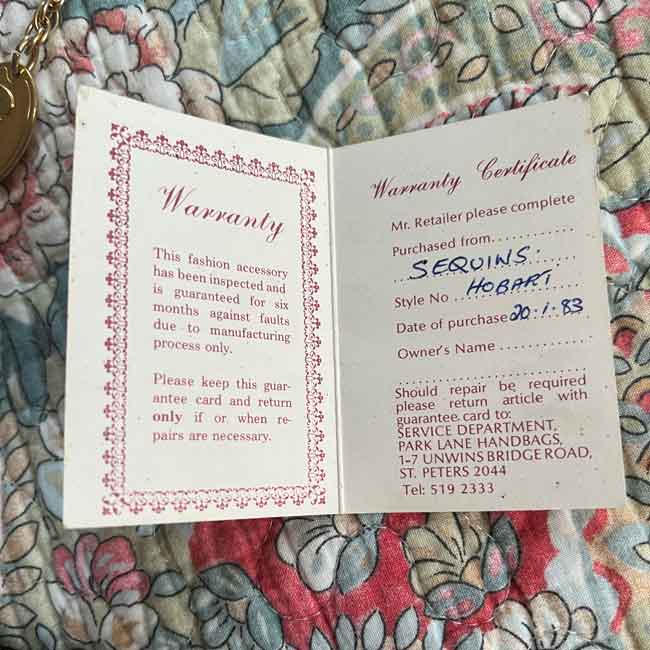 Warranty
This fashion accessory
has been inspected and
is guaranteed for six
months against faults
due to manufacturing
process only.
Please keep this guar-
antee card and return
only if or when re-
pairs are necessary.
Warranty Certificate
Mr. Retailer please complete
Purchased from............
SEQUINS.
Style No ............
HOBART
Date of purchase 20.1.83
Owner's Name ............
Should repair be required
please return article with
guarantee card to:
SERVICE DEPARTMENT,
PARK LANE HANDBAGS,
1-7 UNWINS BRIDGE ROAD,
ST. PETERS 2044
Tel: 519 2333